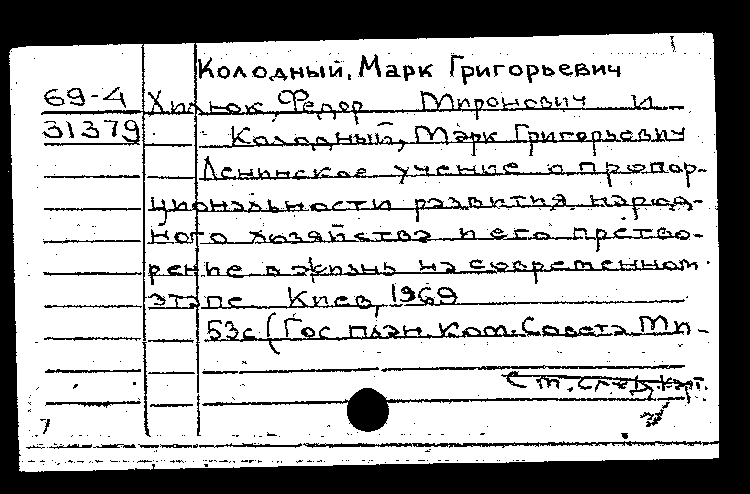 Колодный, Марк Григорьевич
69-4 Хилюк, Федор Миронович и
31379 Колодный, Марк Григорьевич
Ленинское учение о пропор-
циональности развития народ-
ного хозяйства и его претво-
рение в жизнь на современном
этапе Киев, 1969
53с (Гос план. ком. Совета Ми-
См. след. карт.